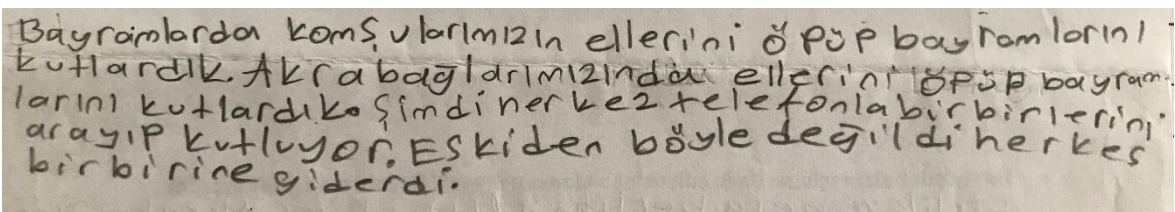 Bayramlarda komşularımızın ellerini öpüp bayramlarını
kutlardık. Akrabağlarımızında ellerini öpüp bayram
larını kutlardık. Şimdi herkez telefonla birbirlerini
arayıp kutluyor. Eskiden böyle değildi herkes
birbirine giderdi.